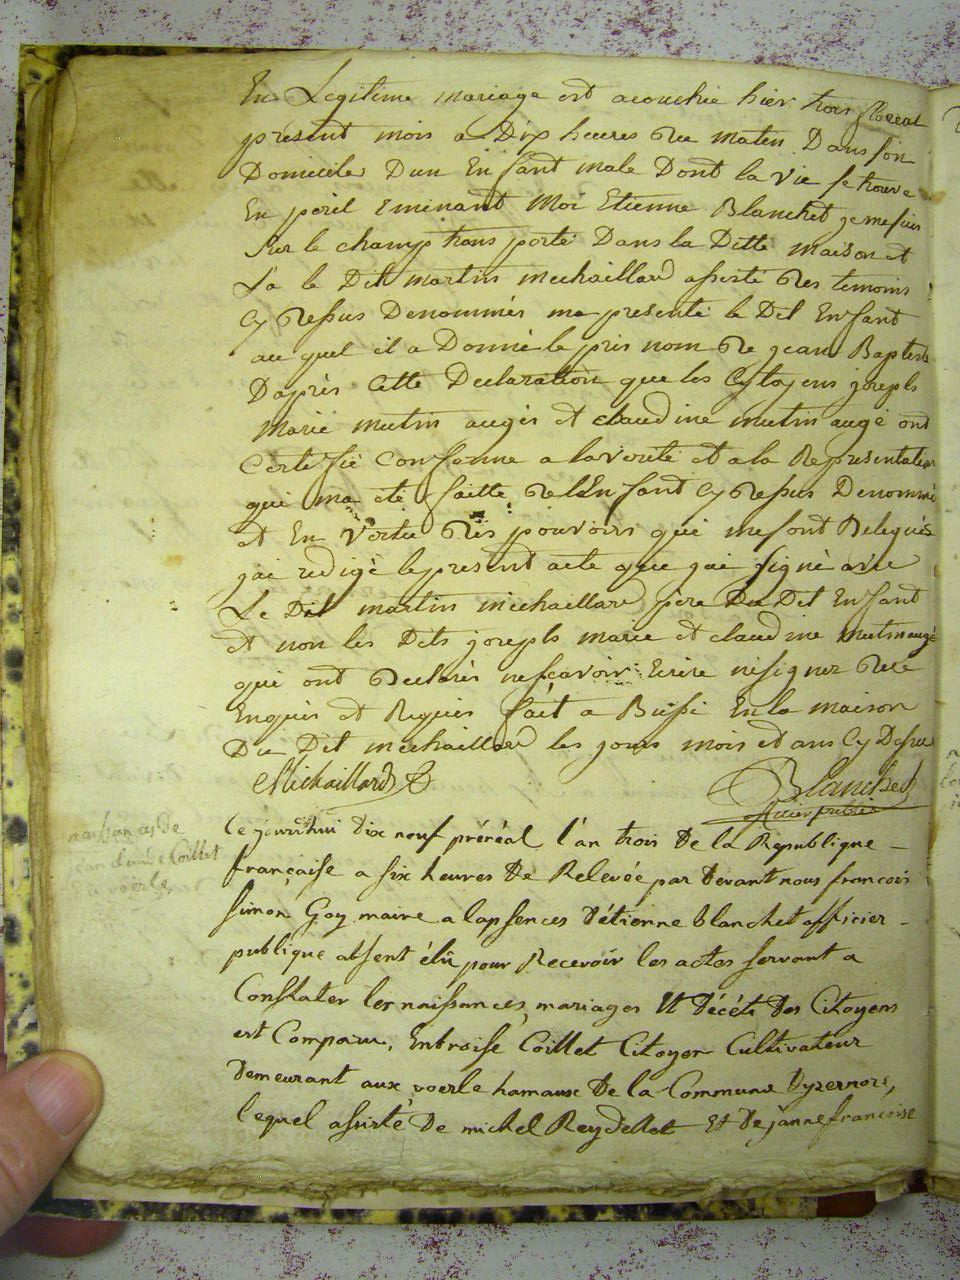 En Legitime mariage est acouchée hier trois floreal
present mois a Dix heures Du matin Dans son
Domicile Dun Enfant male Dont la vie se trouve
En peril Eminant Moi Etienne Blanchet je me suis
sur le champ transporté Dans la Ditte maison et
La le Dit martin michaillard assisté Des temoins
Cy Dessus Denommés ma presenté le Dit Enfant
au quel il a Donné le pris nom De jean Baptiste
Dapres Cette Declaration que les Cytoyens joseph
Marie mutin augér et claudine mutin augé ont
Certifié Conforme a la verité et a la Representation
qui ma été faitte De lEnfant Cy Dessus Denommé
et En vertu Des pouvoirs qui me sont Delegués
jai redigé le present acte que jai signé avec
Le Dit martin michaillard pere Du Dit Enfant
et non les Dits joseph marie et claudine mutin augé
qui ont Declarés ne scavoir Ecrire ni signer De ce
Enquis et Requis fait a Bussi En la maison
Du Dit michaillard les jours mois et ans Cy Dessu
Michaillard Blanchet
officier public
naissances de
Coillet
Ce jourdhui Dix neuf préréal l'an trois De la Republique
françaisse a six heures De Relevée par Devant nous francois
Simon Goy maire a lapsences Détienne blanchet officier
publique absent élû pour Recevoir les actes servant a
Constater les naissances, mariages Et Décét Des Citoyens
est Comparu, Enbroisse Coillet Citoyen Cultivateur
Demeurant aux voerle hamaux De la Commune Dyzernore,
lequel assisté De michel Reydellet Et De janne francoise